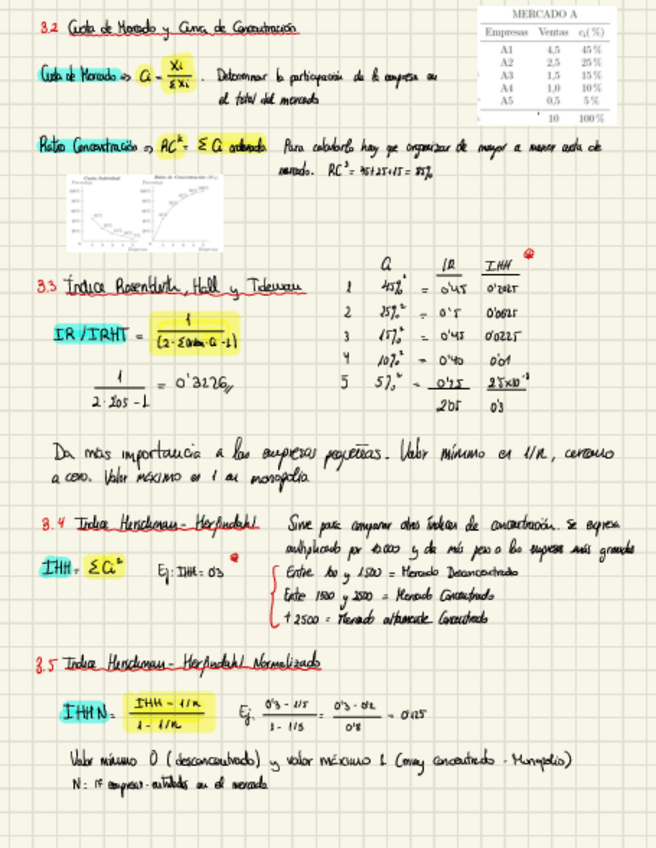 3.2 Cuota de Mercado y Curva de Concentración
MERCADO A
Empresas Ventas cᵢ(%)
A1 4,5 45 %
A2 2,5 25 %
A3 1,5 15 %
A4 1,0 10 %
A5 0,5 5 %
10 100 %
Cuota de Mercado => Ci = Xi / ΣXi . Determinar la participación de la empresa en
el total del mercado
Ratio Concentración => RCᵏ = Σ Ci ordenada Para calcularlo hay que organizar de mayor a menor cuota de
mercado. RC³ = 45+25+15 = 85%
Cuota Individual
3.3 Índice Rosenbluth, Hall y Tideman
Ci IR IHH
1 45%² = 0'45 0'2025
2 25%² = 0'5 0'0625
3 15%² = 0'45 0'0225
4 10%² = 0'40 0'01
5 5%² = 0'25 2'5x10⁻³
2'05 0'3
IR / IRHT = 1 / (2·Σorden·Ci -1)
1 / 2·2'05 -1 = 0'3226
Da mas importancia a las empresas pequeñas. Valor mínimo es 1/n, cercano
a cero. Valor máximo es 1 en monopolio
3.4 Indice Hirschman - Herfindahl
Sirve para comparar otros índices de concentración. Se expresa
multiplicado por 10.000 y da más peso a las empresas más grandes
IHH = ΣCi² Ej: IHH = 0'3
Entre 100 y 1500 = Mercado Desconcentrado
Entre 1500 y 2500 = Mercado Concentrado
+ 2500 = Mercado altamente Concentrado
3.5 Indice Hirschman - Herfindahl Normalizado
IHHN = IHH - 1/n / 1 - 1/n Ej: 0'3 - 1/5 / 1 - 1/5 = 0'3 - 0'2 / 0'8 = 0'125
Valor mínimo 0 (desconcentrado) y valor máximo 1 (muy concentrado - Monopolio)
N: nº empresas - entidades en el mercado